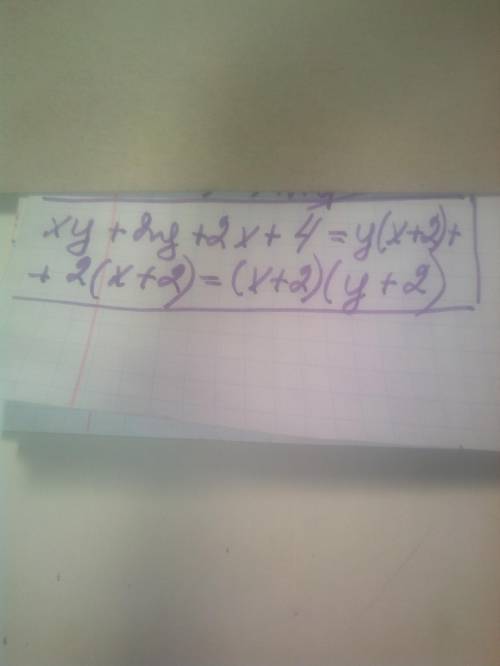 xy + 2y + 2x + 4 = y(x+2) +
+ 2(x+2) = (x+2)(y+2)